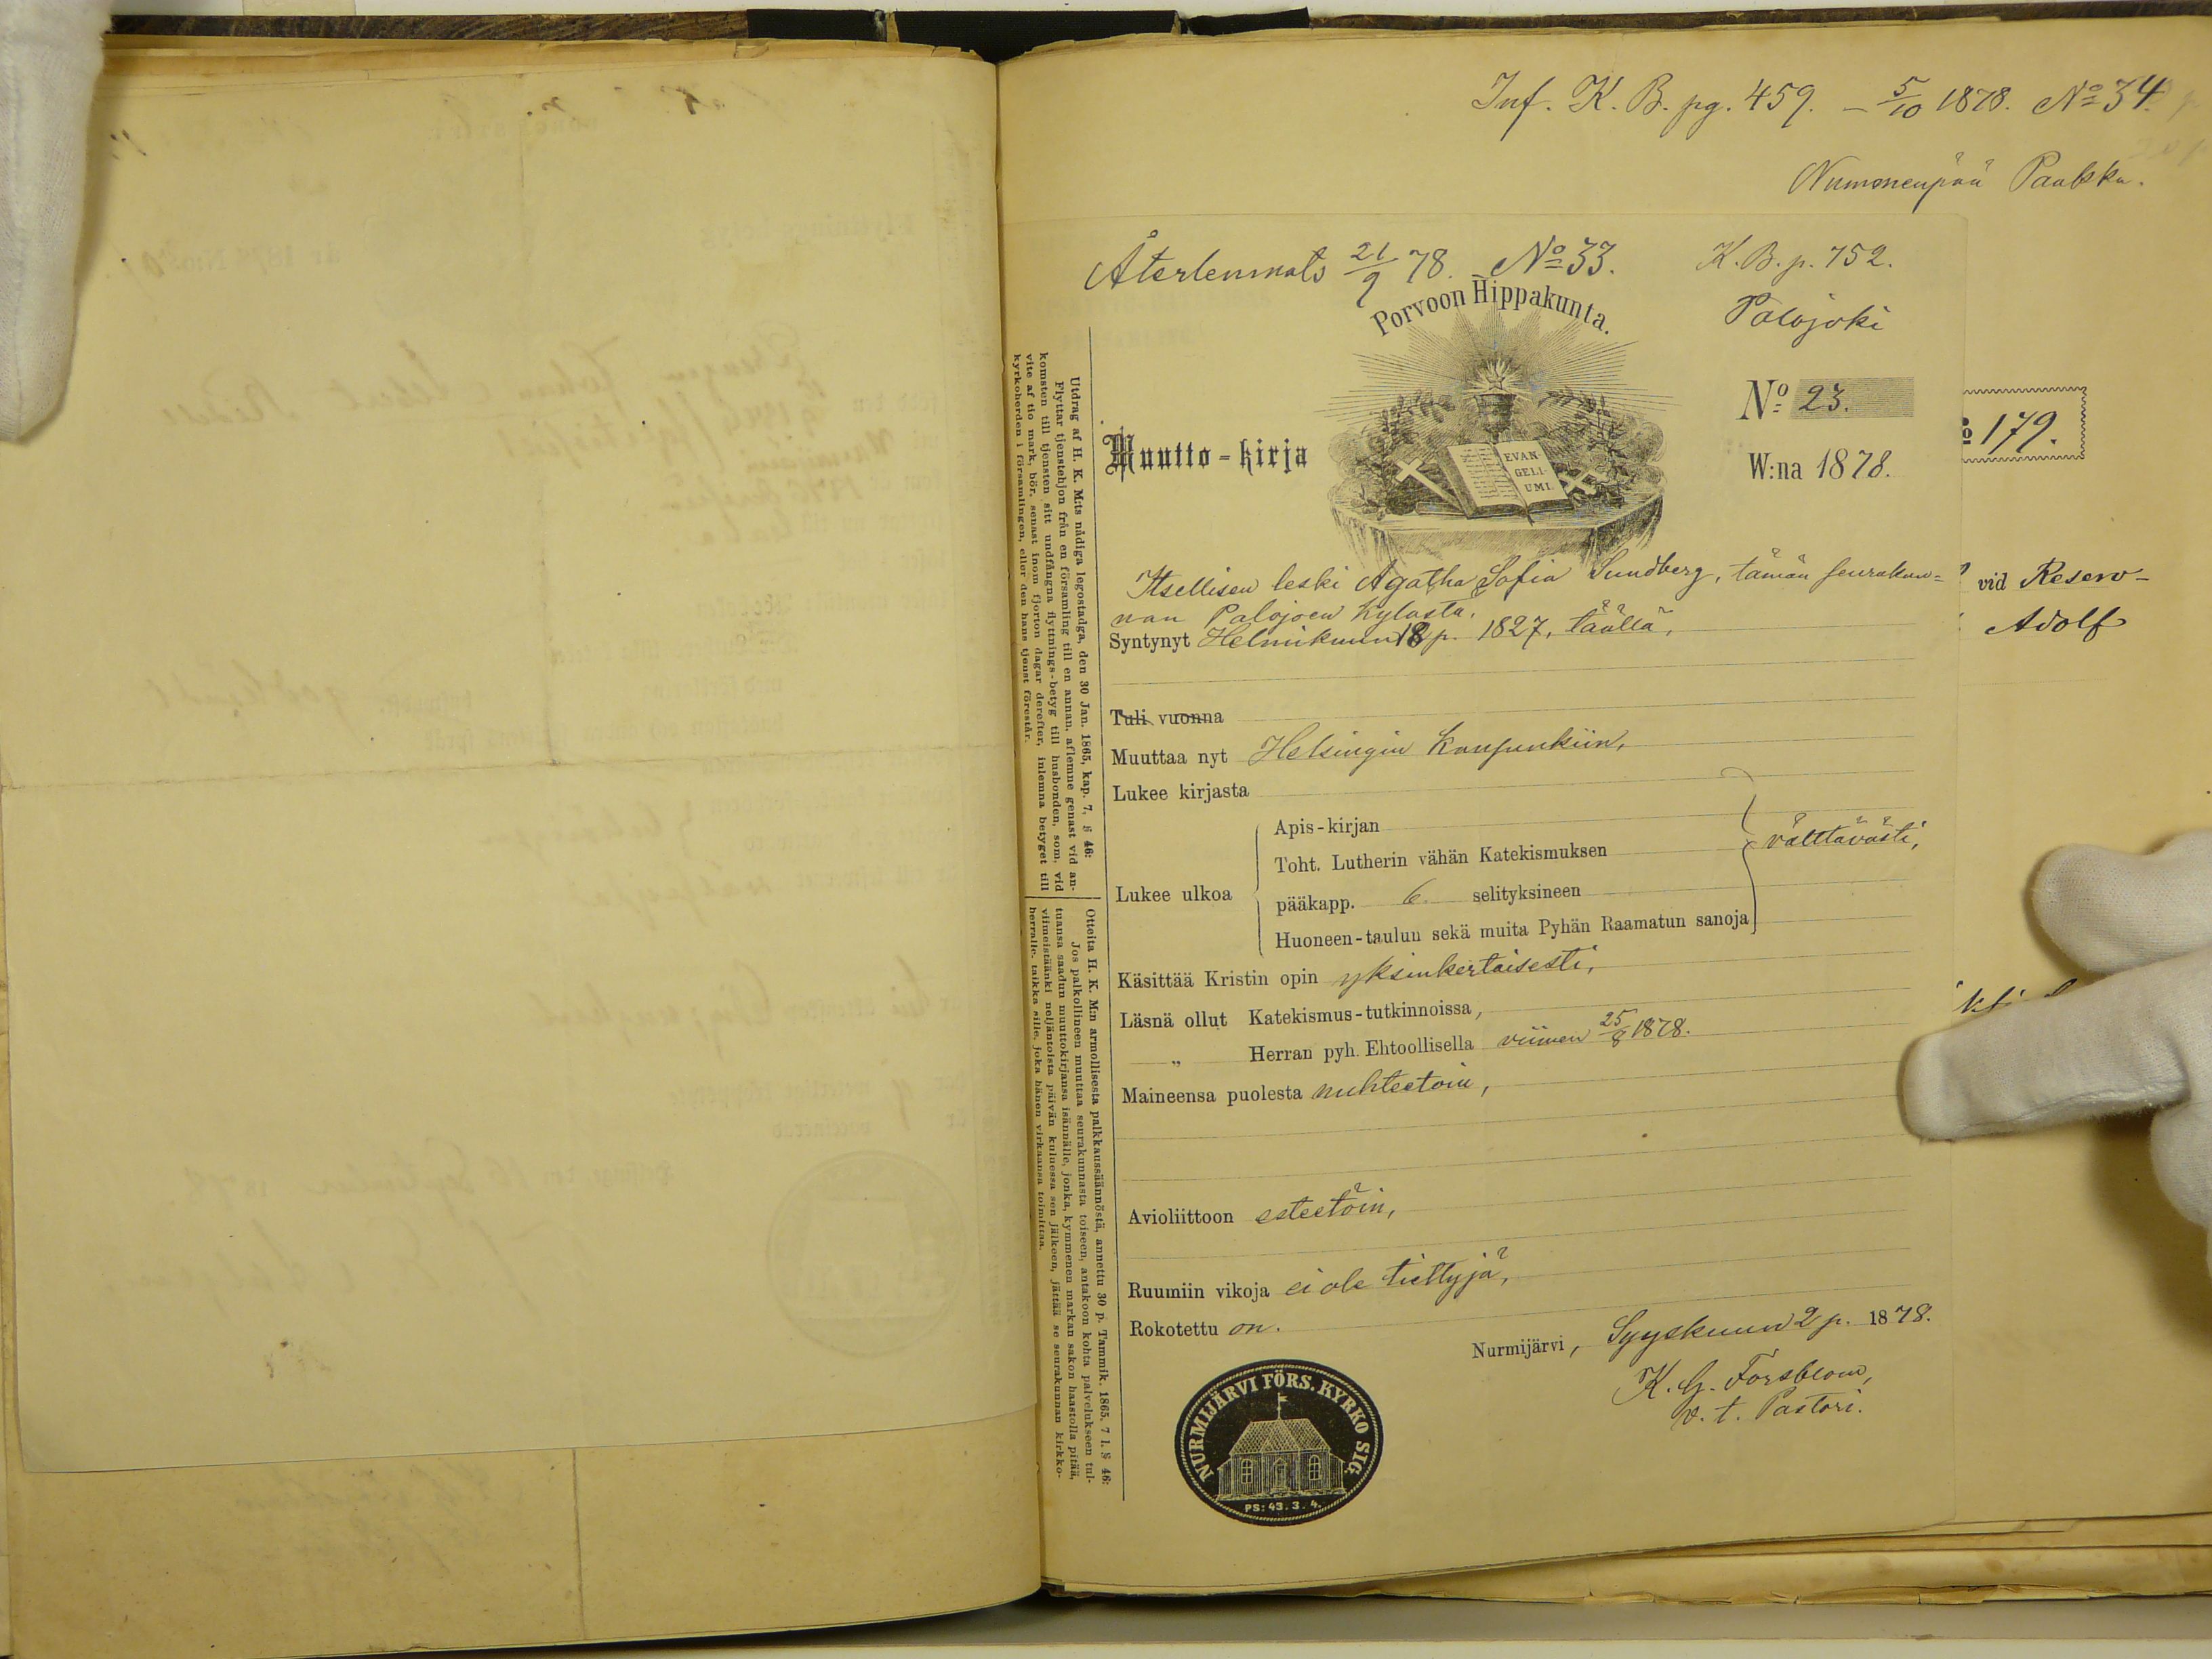 Inf. K. B. pg. 459. – 5/10 1878. No 34.
Nummenpää Paakku.
Återlemnats 21/9 78. No 33.
K. B. p. 752.
Palojoki
Porvoon Hippakunta.
No 23.
Muutto-kirja
EVAN-
GELI-
UMI.
W:na 1878.
No 179.
Itsellisen leski Agatha Sofia Sundberg, tämän seurakun=
nan Palojoen kylästä.
Syntynyt Helmikuun 18 p. 1827, täällä,
vid Reserv-
Adolf
Tuli vuonna
Muuttaa nyt Helsingin kaupunkiin,
Lukee kirjasta
Lukee ulkoa
Apis-kirjan
Toht. Lutherin vähän Katekismuksen
pääkapp. 6. selityksineen
Huoneen-taulun sekä muita Pyhän Raamatun sanoja
välttävästi,
Käsittää Kristin opin yksinkertaisesti,
Läsnä ollut Katekismus-tutkinnoissa,
„ Herran pyh. Ehtoollisella viimen 25/8 1878.
Maineensa puolesta nuhteetoin,
Avioliittoon esteetöin,
Ruumiin vikoja ei ole tiettyjä,
Rokotettu on.
Nurmijärvi, Syyskuun 2 p. 1878.
K. G. Forsblom,
v. t. Pastori.
NURMIJÄRVI FÖRS. KYRKO SIG.
PS: 43. 3. 4.
Utdrag af H. K. M:ts nådiga legostadga, den 30 Jan. 1865, kap. 7, § 46:
Flyttar tjenstehjon från en församling till en annan, aflemne genast vid an-
komsten till tjensten sitt undfångna flyttnings-betyg till husbonden, som, vid
vite af tio mark, bör, senast inom fjorton dagar derefter, inlemna betyget till
kyrkoherden i församlingen, eller den hans tjenst förestår.
Otteita H. K. M:n armollisesta palkkaussäännöstä, annettu 30 p. Tammik. 1865, 7 l. § 46:
Jos palkollineen muuttaa seurakunnasta toiseen, antakoon kohta palvelukseen tul-
tuansa saadun muuttokirjansa isännälle, jonka, kymmenen markan sakon haastolla pitää,
viimeistäänki neljäntoista päivän kuluessa sen jälkeen, jättää se seurakunnan kirkko-
herralle, taikka sille, joka hänen virkaansa toimittaa.